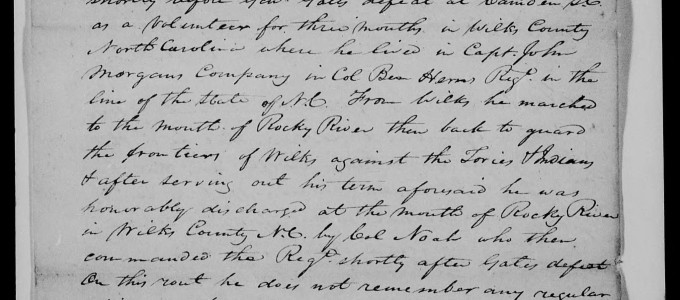 shortly before Genl. Gates defeat at Camden S.C.
as a Volunteer for three months in Wilks County
North Carolina where he lived in Capt. John
Morgans Company in Col Ben Herns Regt. in the
line of the state of N.C. From Wilks he marched
to the mouth of Rocky River then back to guard
the frontiers of Wilks against the Tories & Indians
& after serving out his term aforesaid he was
honorably discharged at the mouth of Rocky River
in Wilks County N.C. by Col Noah who then
commanded the Regt. shortly after Gates defeat
On this rout he does not remember any regular